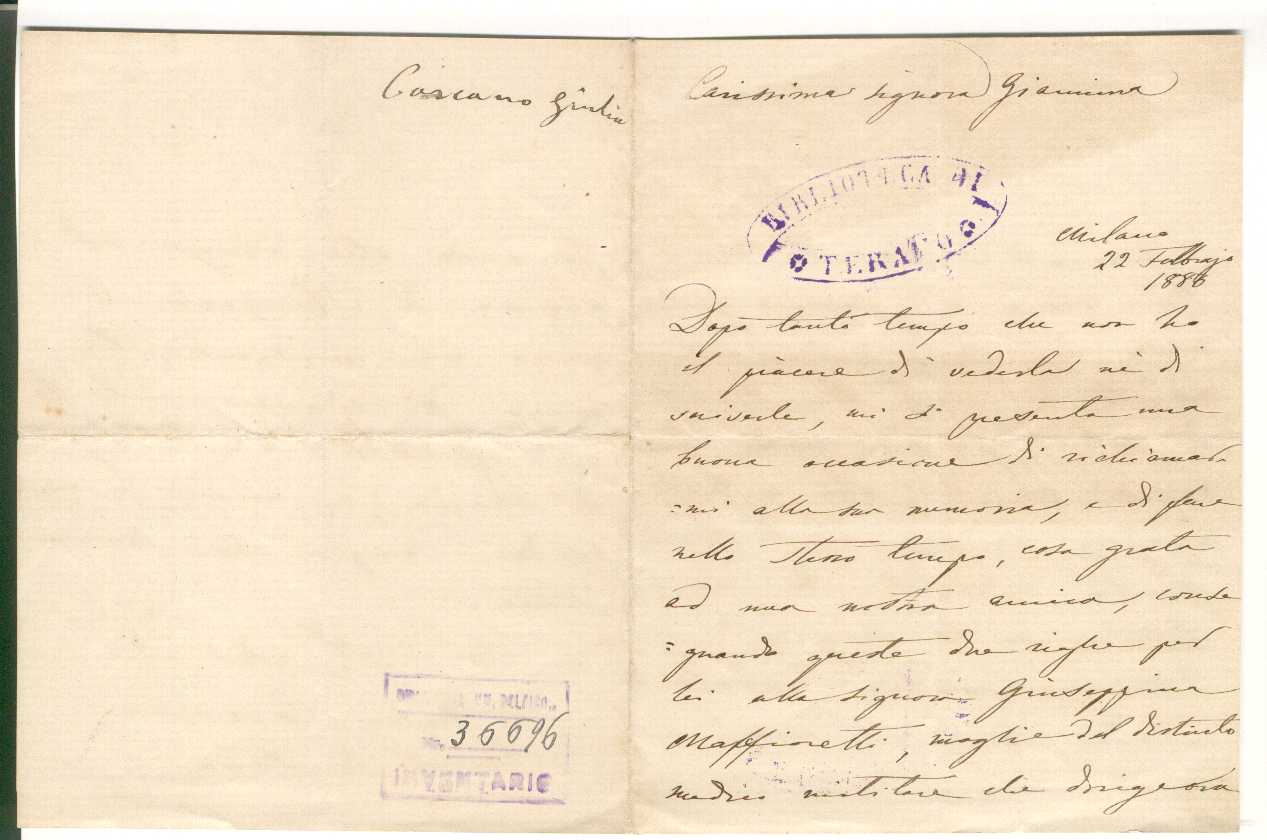 Carcano Giulia
INVENTARIO
Nº. 36696
Carissima signora Giannina
BIBLIOTECA DI
TERAMO
Milano
22 Febbrajo
1886
Dopo tanto tempo che non ho
il piacere di vederla nè di
scriverle, mi si presenta una
buona occasione di richiamar-
=mi alla sua memoria, e di fare
nello stesso tempo, cosa grata
ad una nostra amica, conse
=gnando queste due righe per
lei alla signora Giuseppina
Maffioretti, moglie del distinto
medico militare che dirigeva